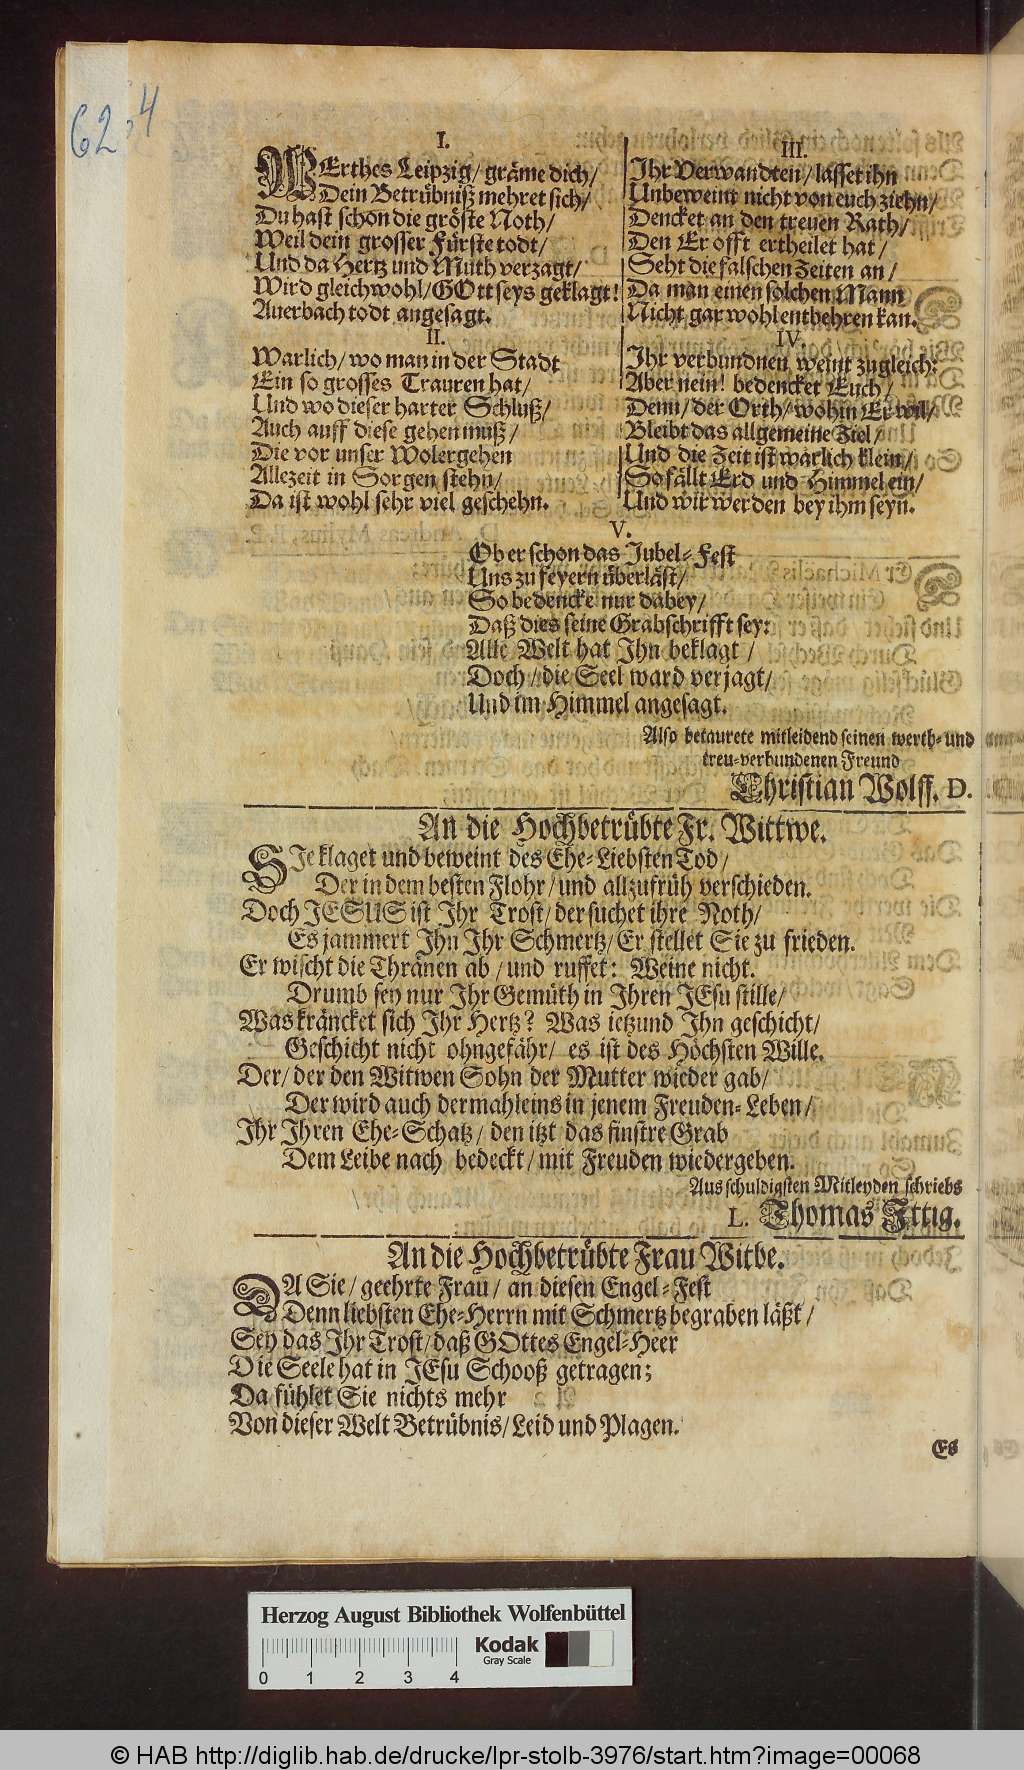 62,4
I.
WErthes Leipzig/ gräme dich/
Dein Betrübniß mehret sich/
Du hast schon die gröste Noth/
Weil dein grosser Fürste todt/
Und da Hertz und Muth verzagt/
Wird gleichwohl/ GOtt seys geklagt!
Auerbach todt angesagt.
II.
Warlich/ wo man in der Stadt
Ein so grosses Trauren hat/
Und wo dieser harter Schluß/
Auch auff diese gehen muß/
Die vor unser Wolergehen
Allezeit in Sorgen stehn/
Da ist wohl sehr viel geschehn.
III.
Ihr Verwandten/ lasset ihn
Unbeweint nicht von euch ziehn/
Dencket an den treuen Rath/
Den Er offt ertheilet hat/
Seht die falschen Zeiten an/
Da man einen solchen Mann
Nicht gar wohl entbehren kan.
IV.
Ihr verbundnen weint zugleich:
Aber nein! bedencket Euch/
Denn/ der Orth/ wohin Er wil/
Bleibt das allgemeine Ziel/
Und die Zeit ist warlich klein/
So fällt Erd und Himmel ein/
Und wir werden bey ihm seyn.
V.
Ob er schon das Jubel-Fest
Uns zu feyern überläst/
So bedencke nur dabey/
Daß dies seine Grabschrifft sey:
Alle Welt hat Ihn beklagt/
Doch/ die Seel ward verjagt/
Und im Himmel angesagt.
Also betaurete mitleidend seinen werth- und
treu-verbundenen Freund
Christian Wolff. D.
An die Hochbetrübte Fr. Wittwe.
SIe klaget und beweint des Ehe-Liebsten Tod/
Der in dem besten Flohr/ und allzufrüh verschieden.
Doch JESUS ist Ihr Trost/ der suchet ihre Noth/
Es jammert Ihn Ihr Schmertz/ Er stellet Sie zu frieden.
Er wischt die Thränen ab/ und ruffet: Weine nicht.
Drumb sey nur Ihr Gemüth in Ihren JEsu stille/
Was kräncket sich Ihr Hertz? Was ietzund Ihn geschicht/
Geschicht nicht ohngefähr/ es ist des Höchsten Wille.
Der/ der den Witwen Sohn der Mutter wieder gab/
Der wird auch dermahleins in jenem Freuden-Leben/
Ihr Ihren Ehe-Schatz/ den itzt das finstre Grab
Dem Leibe nach bedeckt/ mit Freuden wiedergeben.
Aus schuldigsten Mitleyden schriebs
L. Thomas Ittig.
An die Hochbetrübte Frau Witbe.
DA Sie/ geehrte Frau/ an diesen Engel-Fest
Denn liebsten Ehe-Herrn mit Schmertz begraben läßt/
Sey das Ihr Trost/ daß GOttes Engel-Heer
Die Seele hat in JEsu Schooß getragen;
Da fühlet Sie nichts mehr
Von dieser Welt Betrübnis/ Leid und Plagen.
Es
Herzog August Bibliothek Wolfenbüttel
Kodak
Gray Scale
0 1 2 3 4
© HAB http://diglib.hab.de/drucke/lpr-stolb-3976/start.htm?image=00068